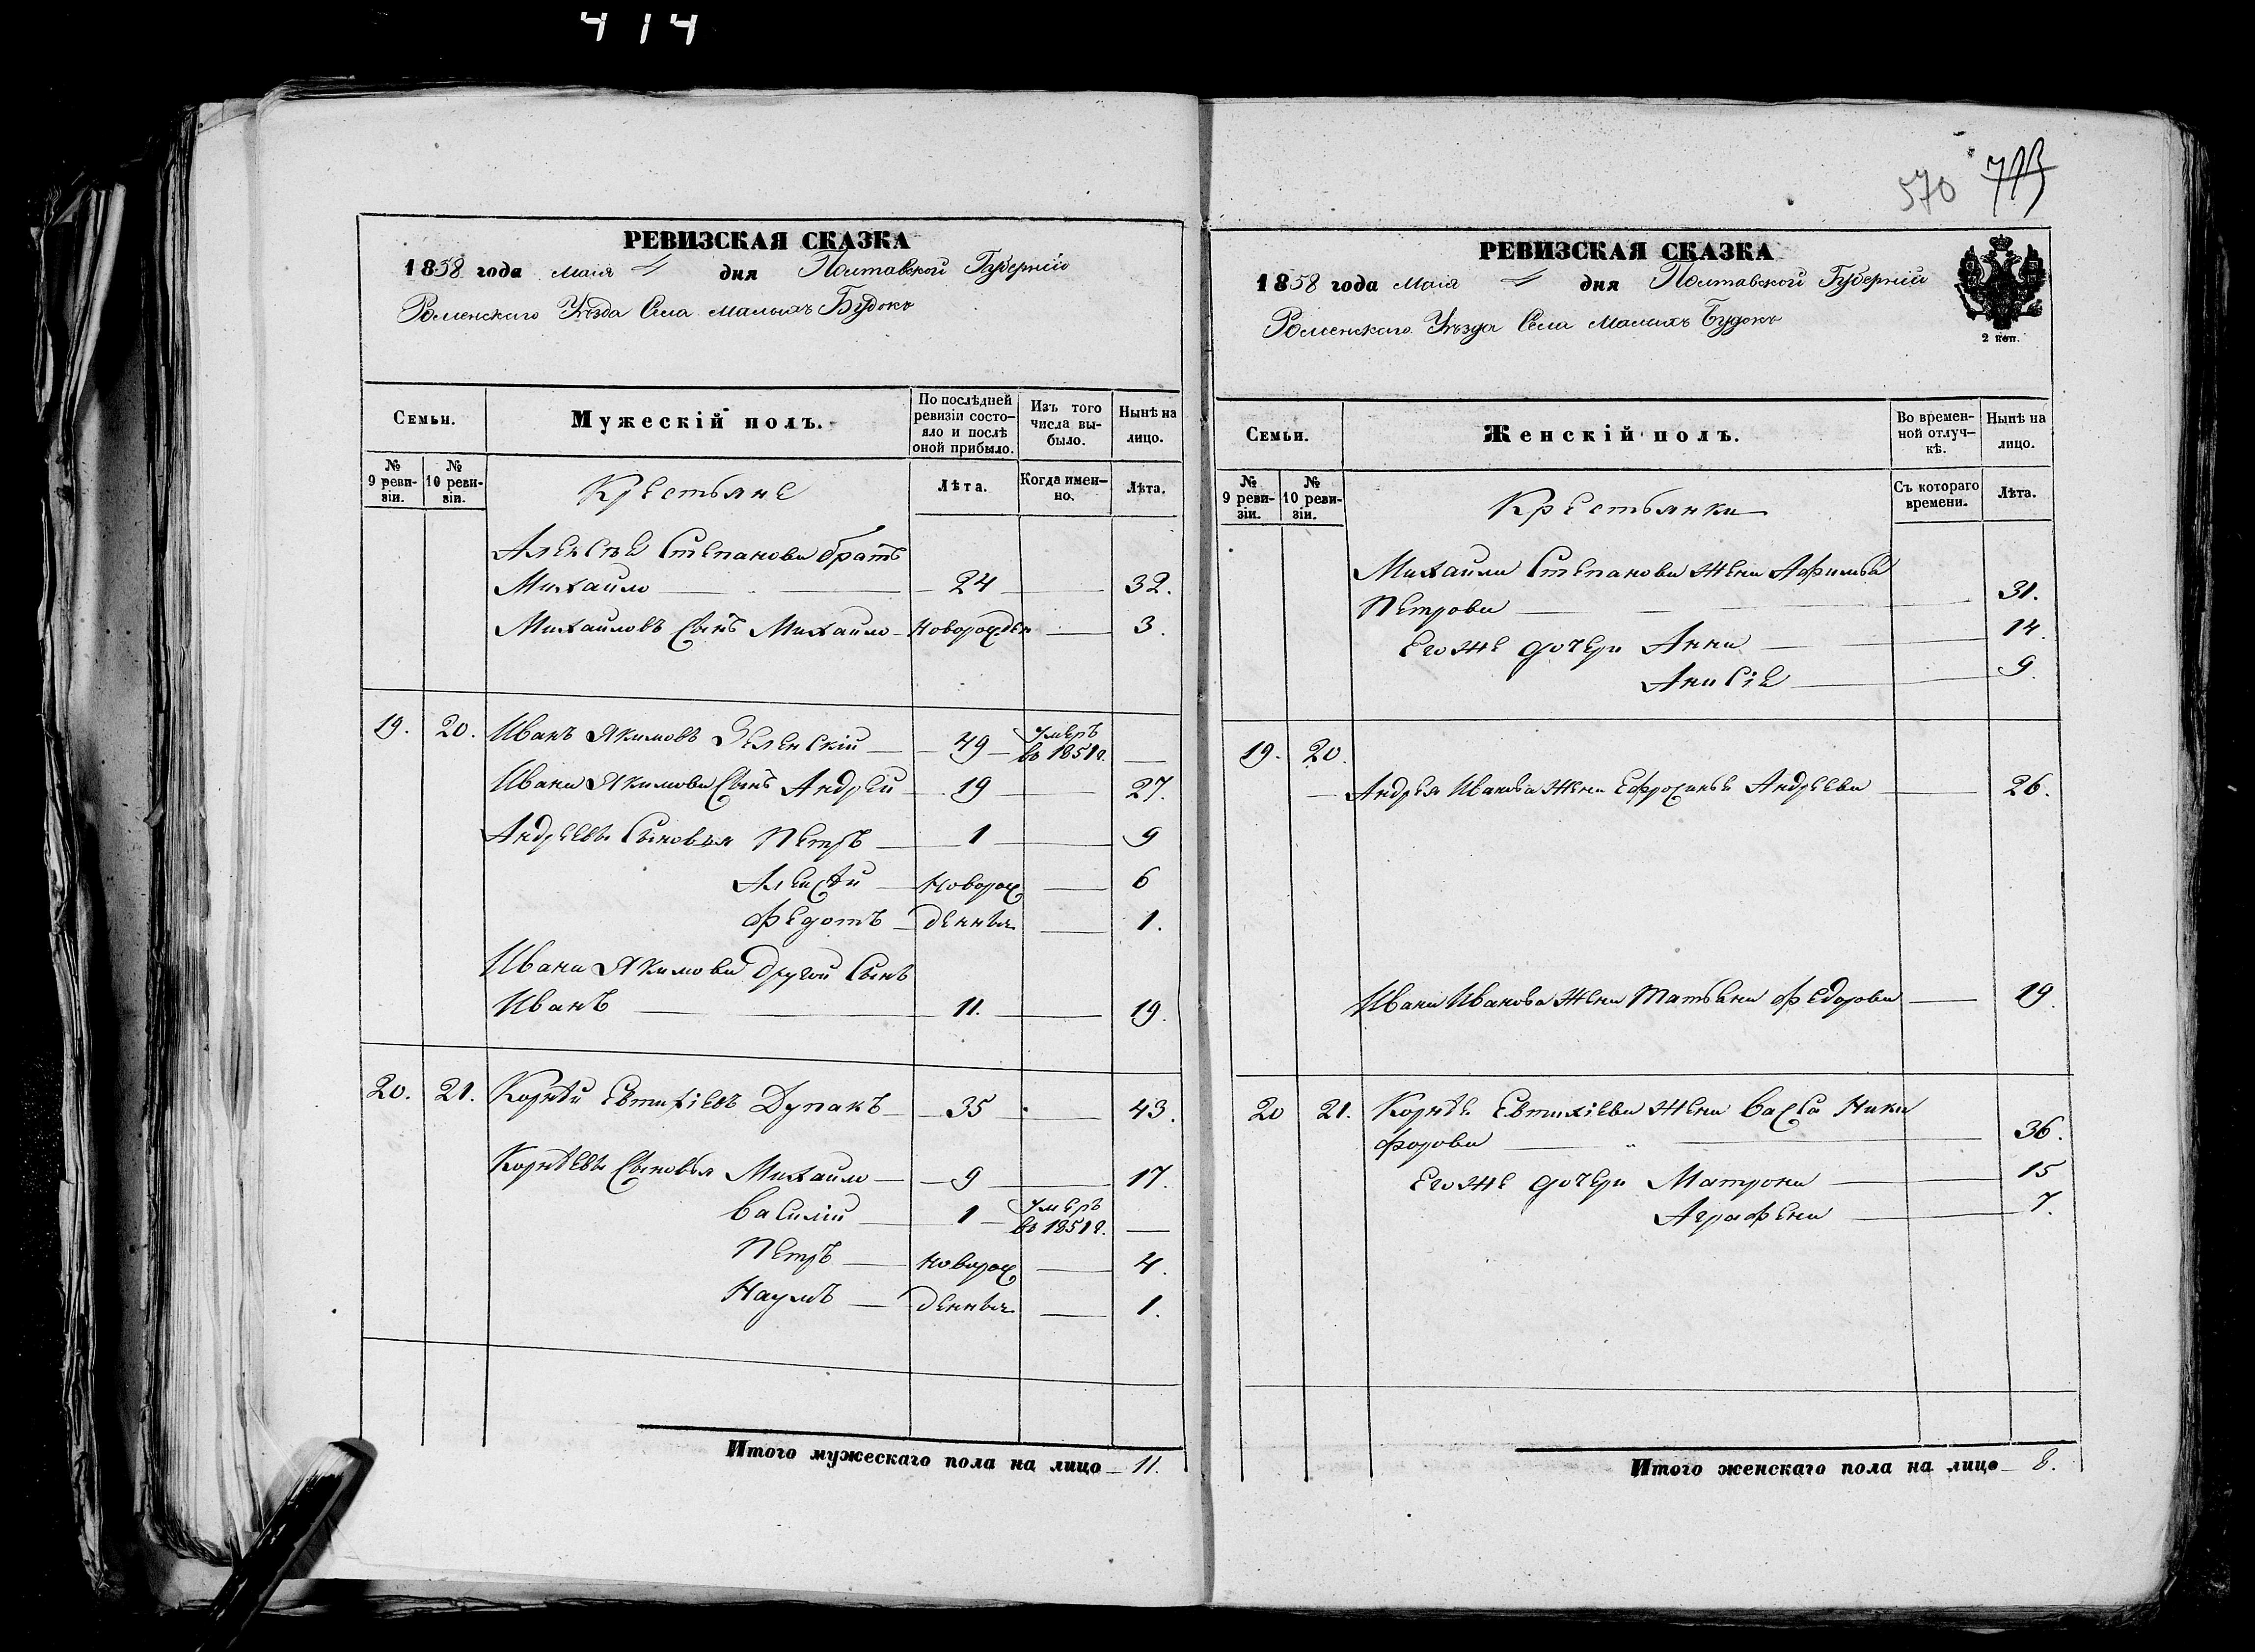 414
570 713
РЕВИЗСКАЯ СКАЗКА
1858 года Маія 4 дня Полтавской Губерніи
Роменскаго Уѣзда Села Малыхъ Будокъ
Семьи.
Мужескій полъ.
По послѣдней ревизіи состо-яло и послѣ оной прибыло.
Изъ того числа вы-было.
Нынѣ на лицо.
№ 9 реви-зіи.
№ 10 реви-зіи.
Крестьяне
Лѣта.
Когда имен-но.
Лѣта.
Алексѣе Степанова братъ
Михайло — 24 — 32.
Михайловъ Сынъ Михайло — Новорожден — 3.
19. 20. Иванъ Якимовъ Зеленскій — 49 — умеръ въ 1851 г. —
Ивана Якимова Сынъ Андрей — 19 — 27.
Андреевы Сыновья Петръ — 1 — 9
Алексѣй — Новорож — 6
Федотъ — денныя — 1.
Ивана Якимова Другой Сынъ
Иванъ — 11. — 19.
20. 21. Корнѣй Евтихіевъ Дупакъ — 35 — 43.
Корнѣевы Сыновья Михайло — 9 — 17.
Василій — 1 — умеръ въ 1851 г. —
Петръ — Новорож — 4.
Наумъ — денныя — 1.
Итого мужескаго пола на лицо — 11.
РЕВИЗСКАЯ СКАЗКА
1858 года Маія 4 дня Полтавской Губерніи
Роменскаго Уѣзда Села Малыхъ Будокъ
2 коп.
Семьи.
Женскій полъ.
Во времен-ной отлуч-кѣ.
Нынѣ на лицо.
№ 9 реви-зіи.
№ 10 реви-зіи.
Крестьянки
Съ котораго времени.
Лѣта.
Михайла Степанова Жена Афимья
Петрова — 31.
Его же дочери Анна — 14.
Анисія — 9.
19. 20.
— Андрея Иванова Жена Ефросинье Андреева — 26.
Ивана Иванова Жена Татьяна Федорова — 19.
20 21. Корнѣе Евтихіева Жена Васса Ники
форова — 36.
Его же дочери Матрона — 15
Аграфена — 7.
Итого женскаго пола на лицо — 8.